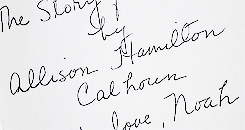 The Story
by
Allison Hamilton
Calhoun
love, Noah